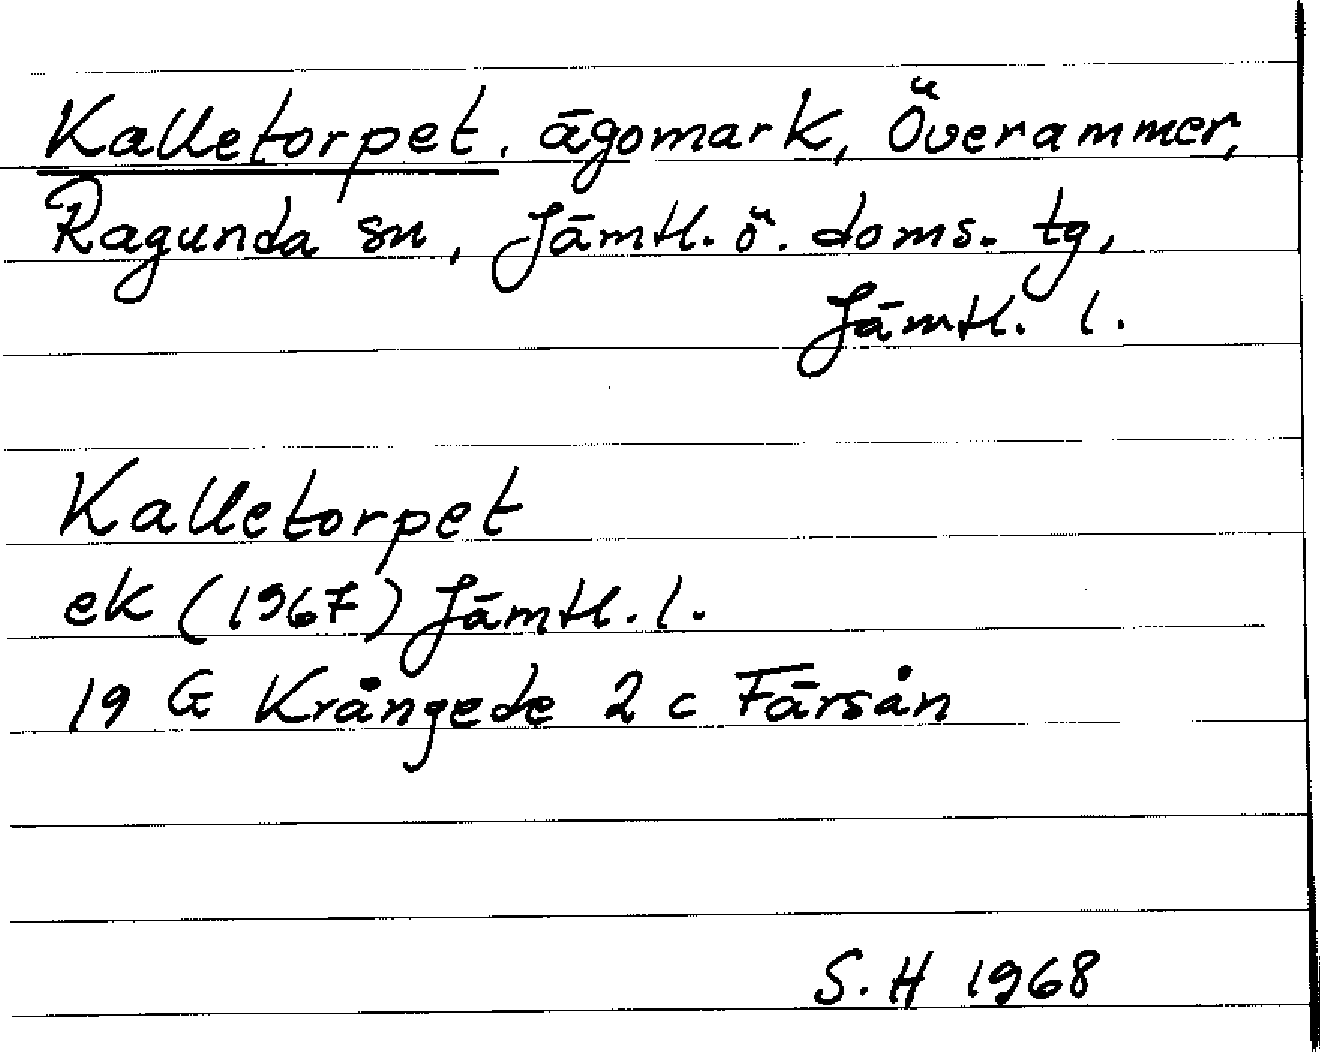 Kalletorpet. ägomark, Överammer,
Ragunda sn, Jämtl. ö. doms. tg,
Jämtl. l.
Kalletorpet
ek (1967) Jämtl. l.
19 G Krångede 2 c Färsån
S. H 1968